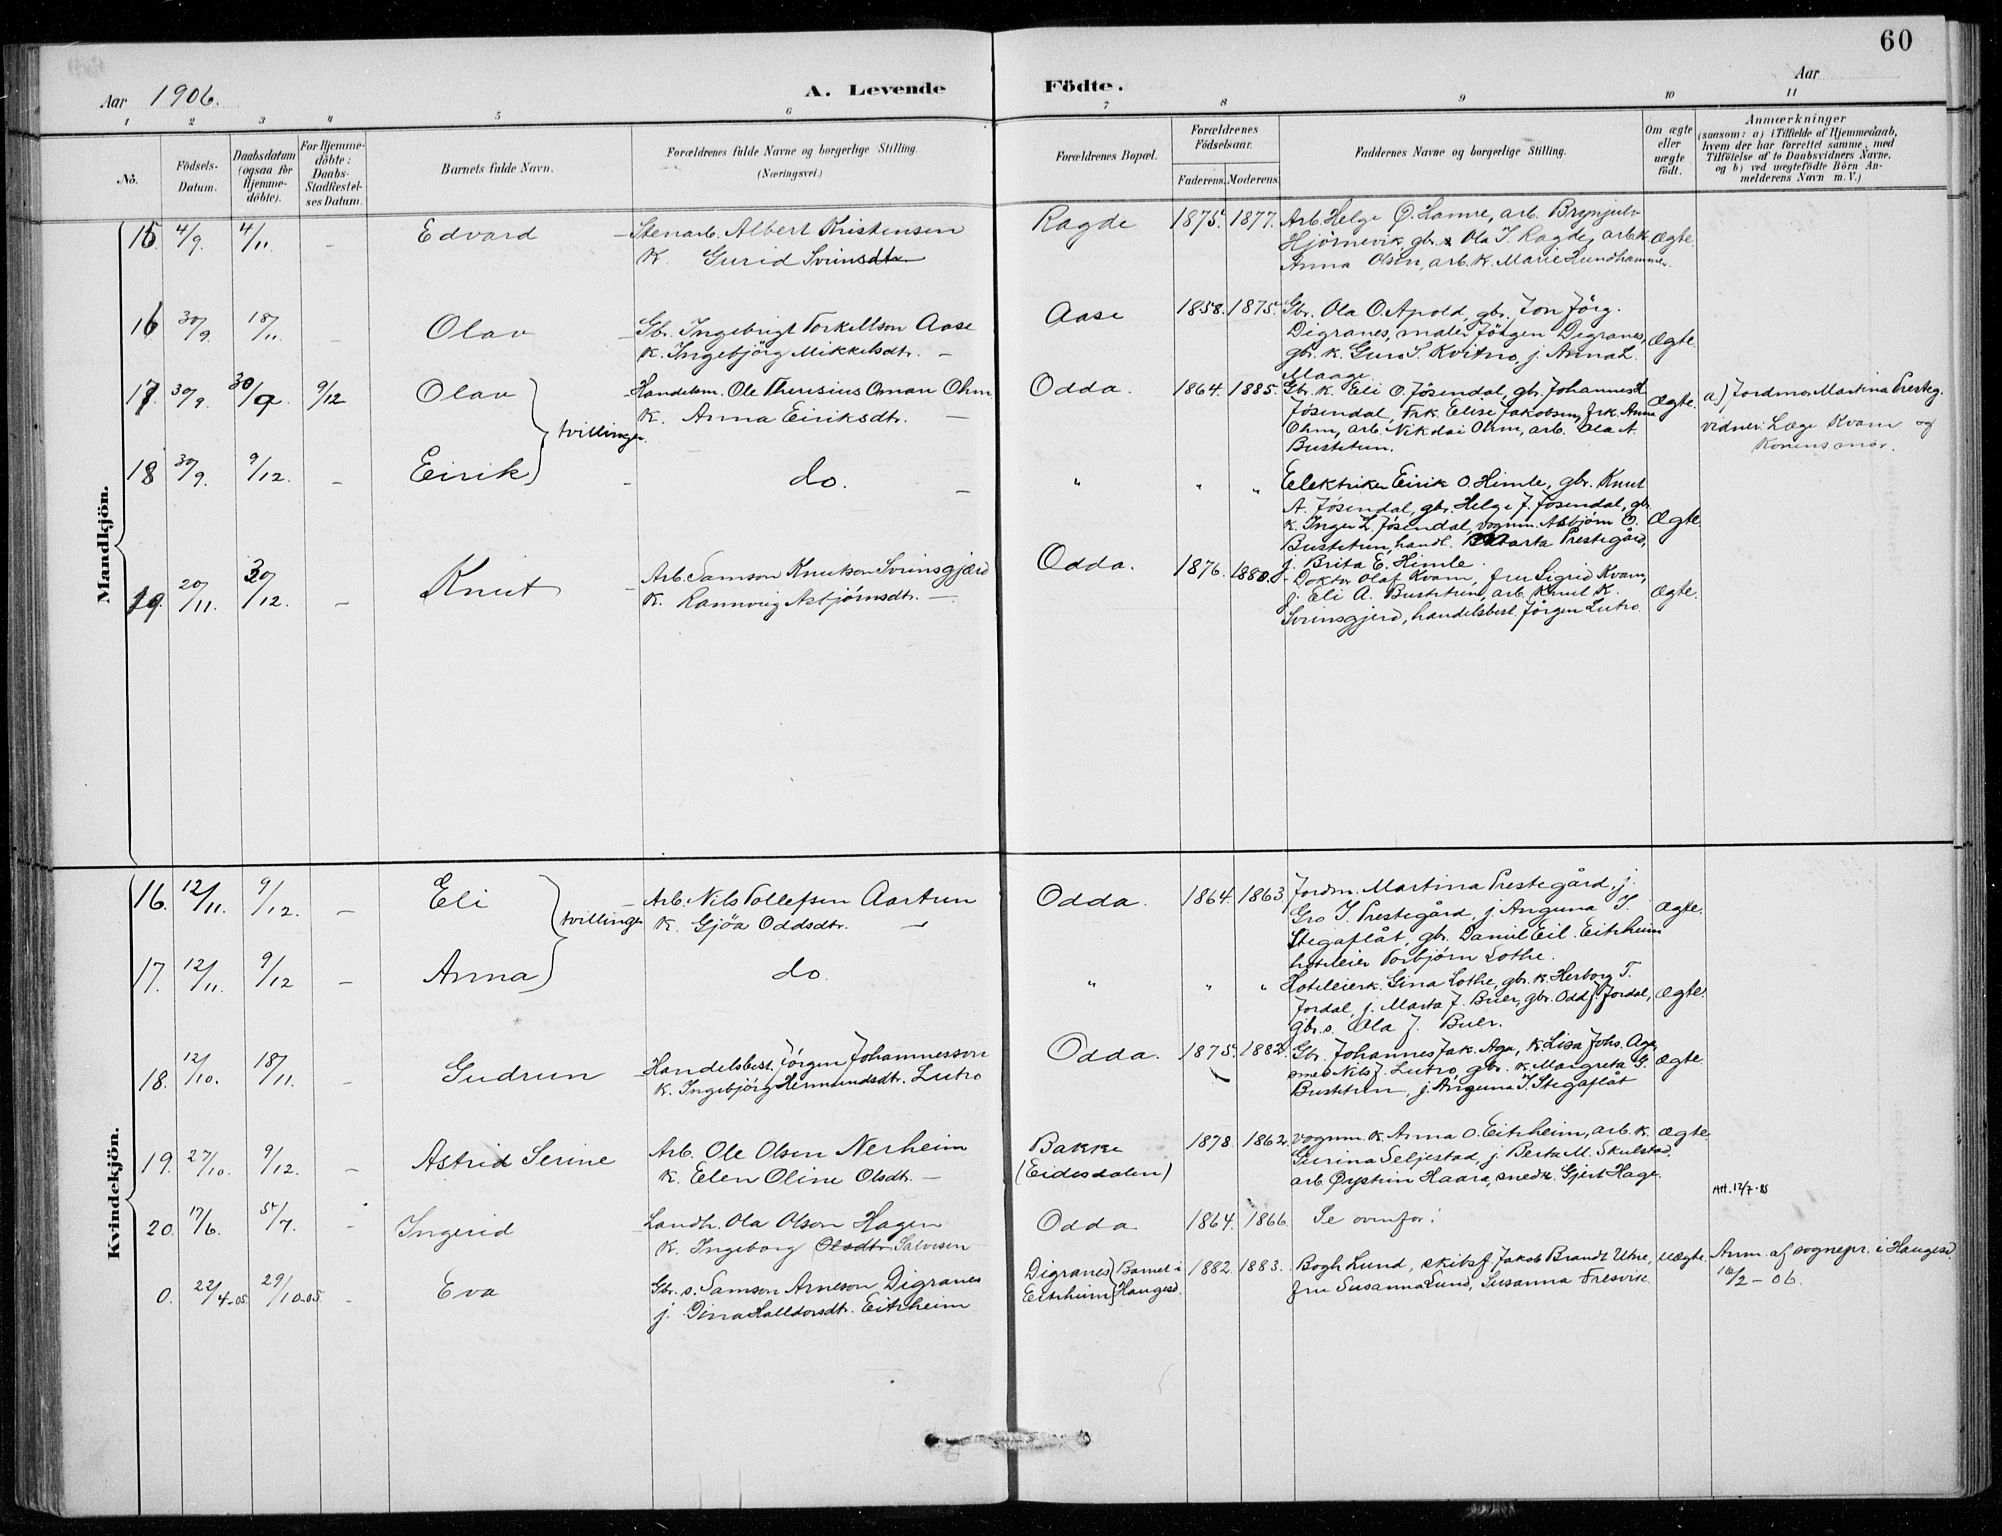 60
Aar 1906. A. Levende Födte. Aar
1 2 3 4 5 6 7 8 9 10 11
No.
Födsels-Datum.
Daabsdatum (ogsaa for Hjemme-döbte).
For Hjemme-döbte: Daabs-Stadfæstel-ses Datum.
Barnets fulde Navn.
Forældrenes fulde Navne og borgerlige Stilling.
(Næringsvei.)
Forældrenes Bopæl.
Forældrenes Födselsaar.
Faderens. Moderens.
Faddernes Navne og borgerlige Stilling.
Om ægte eller uægte födt.
Anmærkninger
(saasom: a) i Tilfælde af Hjemmedaab,
hvem der har forrettet samme, med
Tilföielse af to Daabsvidners Navne,
og b) ved uægtefödte Börn An-
melderens Navn m. V.)
Mandkjön.
15. 4/9. 4/11. - Edvard - Stenarb. Albert Kristensen
K. Gurid Sveinsdtr.
Ragde 1875. 1877. Arb. Helge O. Hamre, arb. Brynjulv
Hjørnevik, gbr. s. Ola I. Ragde, arb.k.
Anna Olsen, arb. k. Marie Lundhammer. Ægte.
16 30/9. 18/11. - Olav - Gbr. Ingebrigt Torkellson Aase
K. Ingebjörg Mikkelsdtr. -
Aase 1858. 1875. Gbr. Ola O. Apold, gbr. Jon Jörg.
Digranes, maler Jörgen Digranes,
gbr. k. Guro S. Kvitno, j. Anna L.
Maage. Ægte.
17. 30/9. 30/9. 9/12 Olav - Handelsm. Ole Theresius Oman Ohm
K. Anna Eiriksdtr. -
tvillinger.
Odda. 1864. 1885. Gbr. k. Eli O. Jösendal, gbr. Johannes H.
Jösendal, Frk. Elise Jakobsen, frk. Anna
Ohm, arb. Nikolai Ohm, arb. Ola A.
Bustetun. Ægte.
a) Jordmor Martina Presteg.
vidner: Læge Kvam og
Konens mor.
18 30/9. 9/12. - Eirik - do. -
" " " Elektriker Eirik O. Himle, gbr. Knut
A. Jösendal, gbr. Helge J. Jösendal, gbr.
k. Inger L. Jösendal, vognm. Asbjörn O.
Bustetun, handl. Marta Prestegård,
j. Brita E. Himle. Ægte.
19. 20/11. 30/12. - Knut Arb. Samson Knutson Sveinsgjærd
K. Rannveig Asbjörnsdtr. -
Odda. 1876. 1880. - Doktor Olaf Kvam, fru Sigrid Kvam,
j. Eli A. Bustetun, arb. Knut K.
Sveinsgjerd, handelsbest. Jörgen Lutro. Ægte.
Kvindekjön.
16. 12/11. 9/12. - Eli - Arb. Nils Tollefsen Aartun
K. Gjöa Oddsdtr. -
tvillinger
Odda. 1864. 1863. Jordm. Martina Prestegård, j.
Gro I. Prestegård, j. Anguna I.
Stegaflåt, gbr. Daniel Eil. Eitrheim
hoteleier Torbjörn Lothe. Ægte.
17. 12/11. 9/12 - Anna do.
" " " Hoteleierk. Gina Lothe, gbr. k. Herborg T.
Jordal, j. Marta J. Buer, gbr. Odd J. Jordal,
gbr. s. Ola J. Buer. Ægte.
18. 12/10. 18/11. - Gudrun - Handelsbest. Jörgen Johannesson
K. Ingebjörg Hermundsdtr. Lutro
Odda. 1875. 1882. Gbr. Johannes Jak. Aga, k. Lisa Johs. Aga,
smed Nils J. Lutro, gbr. k. Margreta G.
Bustetun, j. Anguna I. Stegaflåt Ægte.
19. 27/10. 9/12. - Astrid Serine Arb. Ole Olsen Nerheim
K. Elen Oline Olsdtr. -
Bakke
(Eidesdalen)
1878. 1862. Vognm. k. Anna O. Eitrheim, arb. k.
Gurina Seljestad, j. Berta M. Skulstad,
arb. Øystein Haara, snedk. Gjert Hage. Ægte.
Att. 12/7-85
20. 17/6. 5/7. - Ingerid Landh. Ola Olson Hagen
K. Ingeborg Olsdtr. Salvesen
Odda 1864. 1866. Se ovenfor!
0. 22/4-05. 29/10.05. - Eva Gbr. s. Samson Arneson Digranes
j. Dina Halldorsdtr. Eitrheim
Digranes Barnet i
Eitrheim Haugesd.
1882. 1883. Bogh. Lund, skibsf. Jakob Brandt Utne,
fru Susanna Lund, Susanna Fresvik. Uægte.
Anm. af sognepr. i Haugesd.
16/2-06.